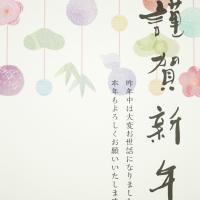 謹賀新年
昨年中は大変お世話になりました
本年もよろしくお願いいたします